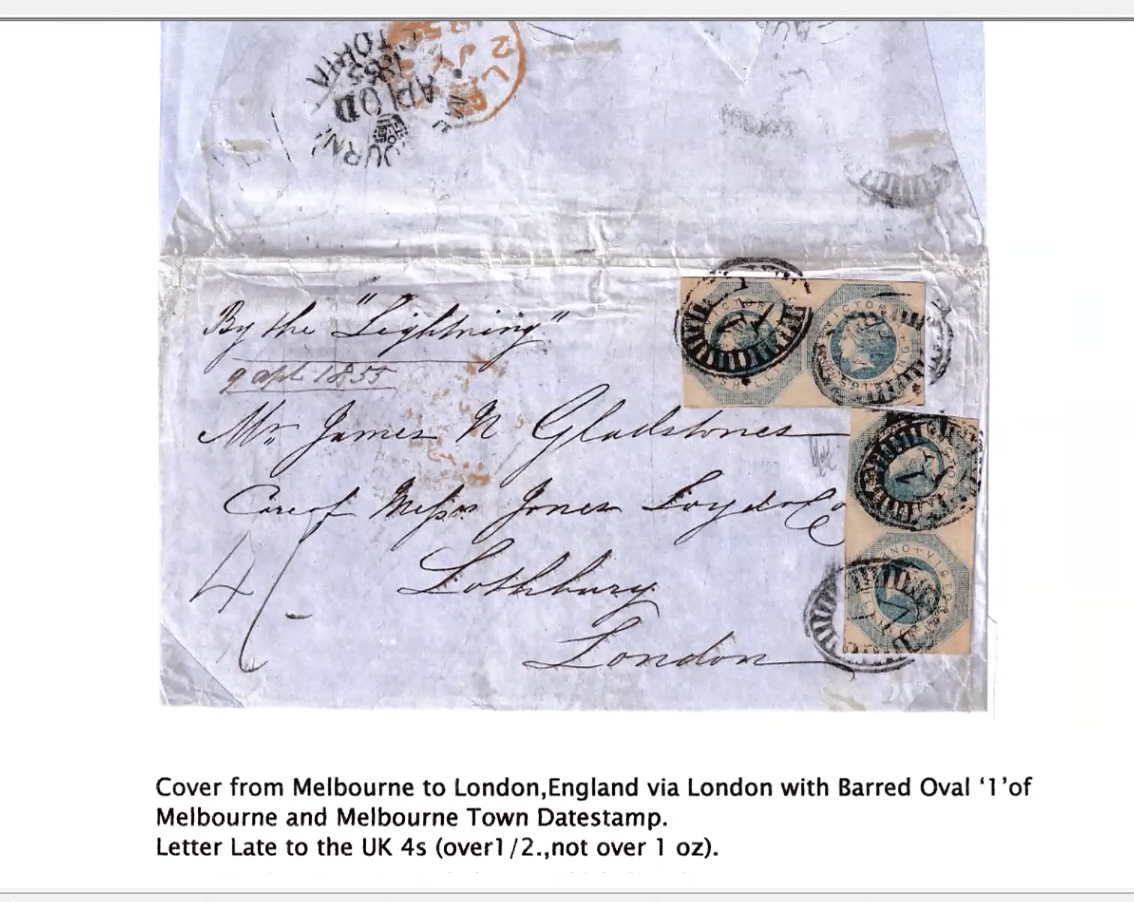 MELBOURNE
AP 10 D
1855
VICTORIA
By the "Lightning"
9 apl 1855
Mr James N Gladstones
Care of Messrs Jones Loyd & Co
Lothbury
London
4/-
VICTORIA
VICTORIA
ONE SHILLING
VICTORIA
VICTORIA
Cover from Melbourne to London,England via London with Barred Oval ‘1’of
Melbourne and Melbourne Town Datestamp.
Letter Late to the UK 4s (over1/2.,not over 1 oz).